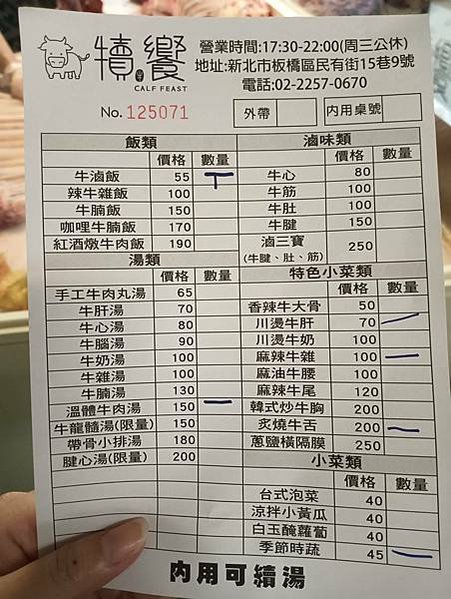 犢饗
CALF FEAST
營業時間:17:30-22:00(周三公休)
地址:新北市板橋區民有街15巷9號
電話:02-2257-0670
No. 125071
外帶
內用桌號
飯類
價格 數量
牛滷飯 55 T
辣牛雜飯 100
牛腩飯 150
咖哩牛腩飯 170
紅酒燉牛肉飯 190
湯類
價格 數量
手工牛肉丸湯 65
牛肝湯 70
牛心湯 80
牛腦湯 90
牛奶湯 100
牛雜湯 100
牛腩湯 130
溫體牛肉湯 150 一
牛龍髓湯(限量) 150
帶骨小排湯 180
腱心湯(限量) 200
滷味類
價格 數量
牛心 80
牛筋 100
牛肚 100
牛腱 150
滷三寶
(牛腱、肚、筋) 250
特色小菜類
價格 數量
香辣牛大骨 50
川燙牛肝 70 一
川燙牛奶 100
麻辣牛雜 100 一
麻油牛腰 100
麻辣牛尾 120
韓式炒牛胸 200
炙燒牛舌 200 一
蔥鹽橫隔膜 250
小菜類
價格 數量
台式泡菜 40
涼拌小黃瓜 40
白玉醃蘿蔔 40
季節時蔬 45 一
內用可續湯